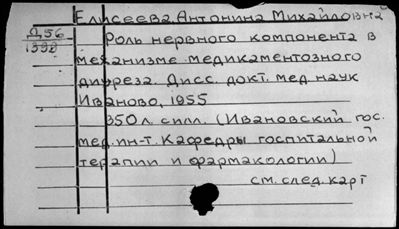 Елисеева, Антонина Михайловна
Д 56
1392
Роль нервного компонента в
механизме медикаментозного
диуреза. Дисс. докт. мед наук
Иваново, 1955
350 л. силл. (Ивановский гос.
мед. ин-т. Кафедры госпитальной
терапии и фармакологии)
см. след. карт